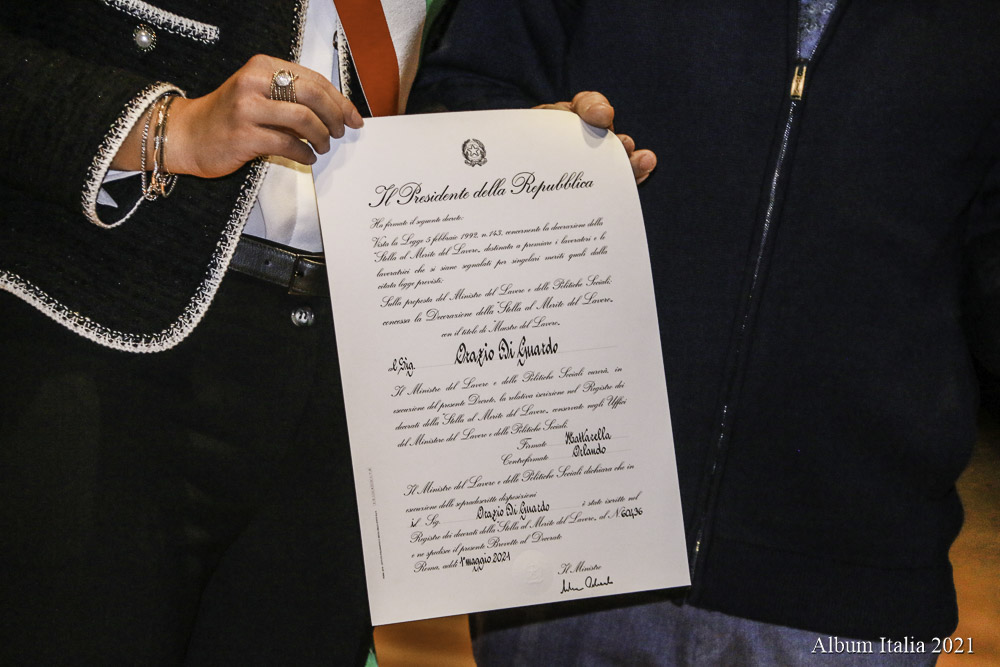 Il Presidente della Repubblica
Ha firmato il seguente decreto:
Vista la Legge 5 febbraio 1992, n. 143, concernente la decorazione della
"Stella al Merito del Lavoro", destinata a premiare i lavoratori e le
lavoratrici che si siano segnalati per singolari meriti quali dalla
citata legge previsti;
Sulla proposta del Ministro del Lavoro e delle Politiche Sociali;
concessa la Decorazione della "Stella al Merito del Lavoro"
con il titolo di "Maestro del Lavoro"
al Sig. Orazio Di Guardo
Il Ministro del Lavoro e delle Politiche Sociali curerà, in
esecuzione del presente Decreto, la relativa iscrizione nel Registro dei
decorati della "Stella al Merito del Lavoro", conservato negli Uffici
del Ministero del Lavoro e delle Politiche Sociali.
Firmato Mattarella
Controfirmato Orlando
Il Ministro del Lavoro e delle Politiche Sociali dichiara che in
esecuzione delle sopradescritte disposizioni
il Sig. Orazio Di Guardo è stato iscritto nel
Registro dei decorati della "Stella al Merito del Lavoro", al N. 60436
e ne spedisce il presente Brevetto al Decorato
Roma, addì 1° maggio 2021
Il Ministro
Album Italia 2021